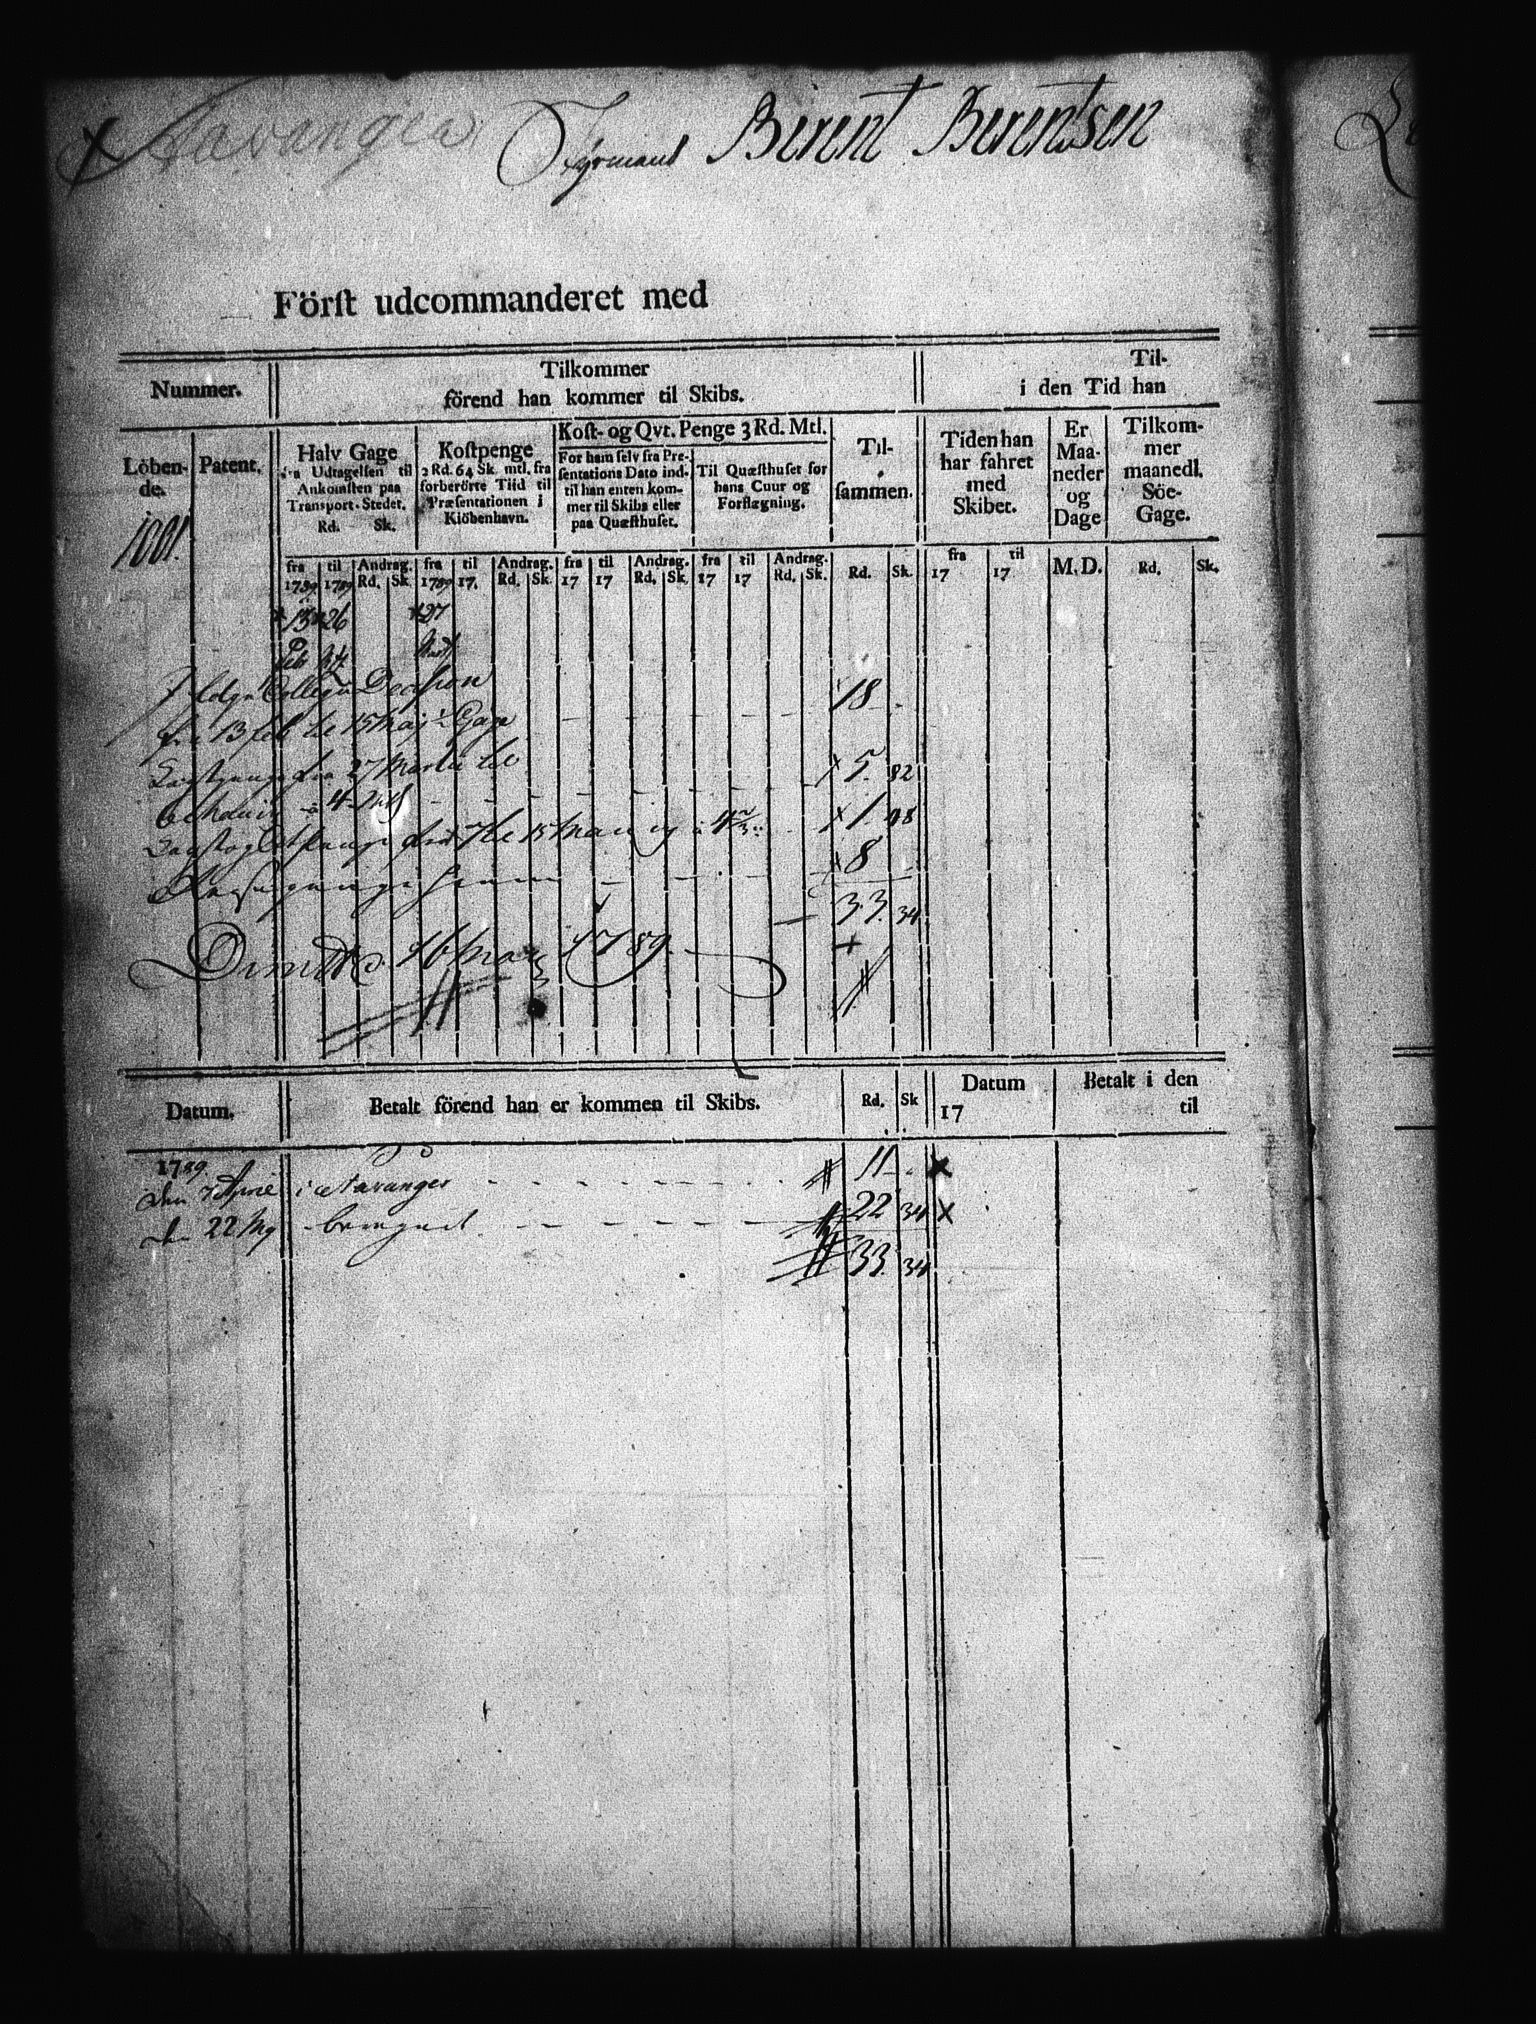 Stavanger Styrmand Berent Berentsen
Förſt udcommanderet med
Nummer.
Tilkommer
förend han kommer til Skibs.
Til-
i den Tid han
Löben-
de.
Patent.
Halv Gage
fra Udtagelſen til
Ankomſten paa
Transport-Stedet.
Rd. Sk.
Koſtpenge
2 Rd. 64 Sk. mtl. fra
forberörte Tiid til
Præſentationen i
Kiöbenhavn.
Koſt- og Qvr. Penge 3 Rd. Mtl.
For ham ſelv fra Pre-
ſentations Dato ind-
til han enten kom-
mer til Skibs eller
paa Quæſthuſet.
Til Quæſthuſet for
hans Cuur og
Forflægning.
Til-
ſammen.
Tiden han
har fahret
med
Skibet.
Er
Maa-
neder
og
Dage
Tilkom-
mer
maanedl.
Söe-
Gage.
1001.
fra til Andrag. fra til Andrag. fra til Andrag. fra til Andrag. fra til
1789 1789 Rd. Sk. 1789 17. Rd. Sk. 17 17 Rd. Sk. 17 17 Rd. Sk. Rd. Sk. 17 17 M.D. Rd. Sk.
13 26 27
Feb
Collegii Decision
fra 13 feb til 15 Maj ½ Gage 18 -
27 Martii til
4 5 82
til 15 Maj 1 48
8 -
33. 34
Dimitt. d. 16 Maj 1789.
Datum. Betalt förend han er kommen til Skibs. Rd. Sk Datum Betalt i den
17 til
1789
den 7 April i Stavanger 11 -
den 22 Maj 22 34
33. 34